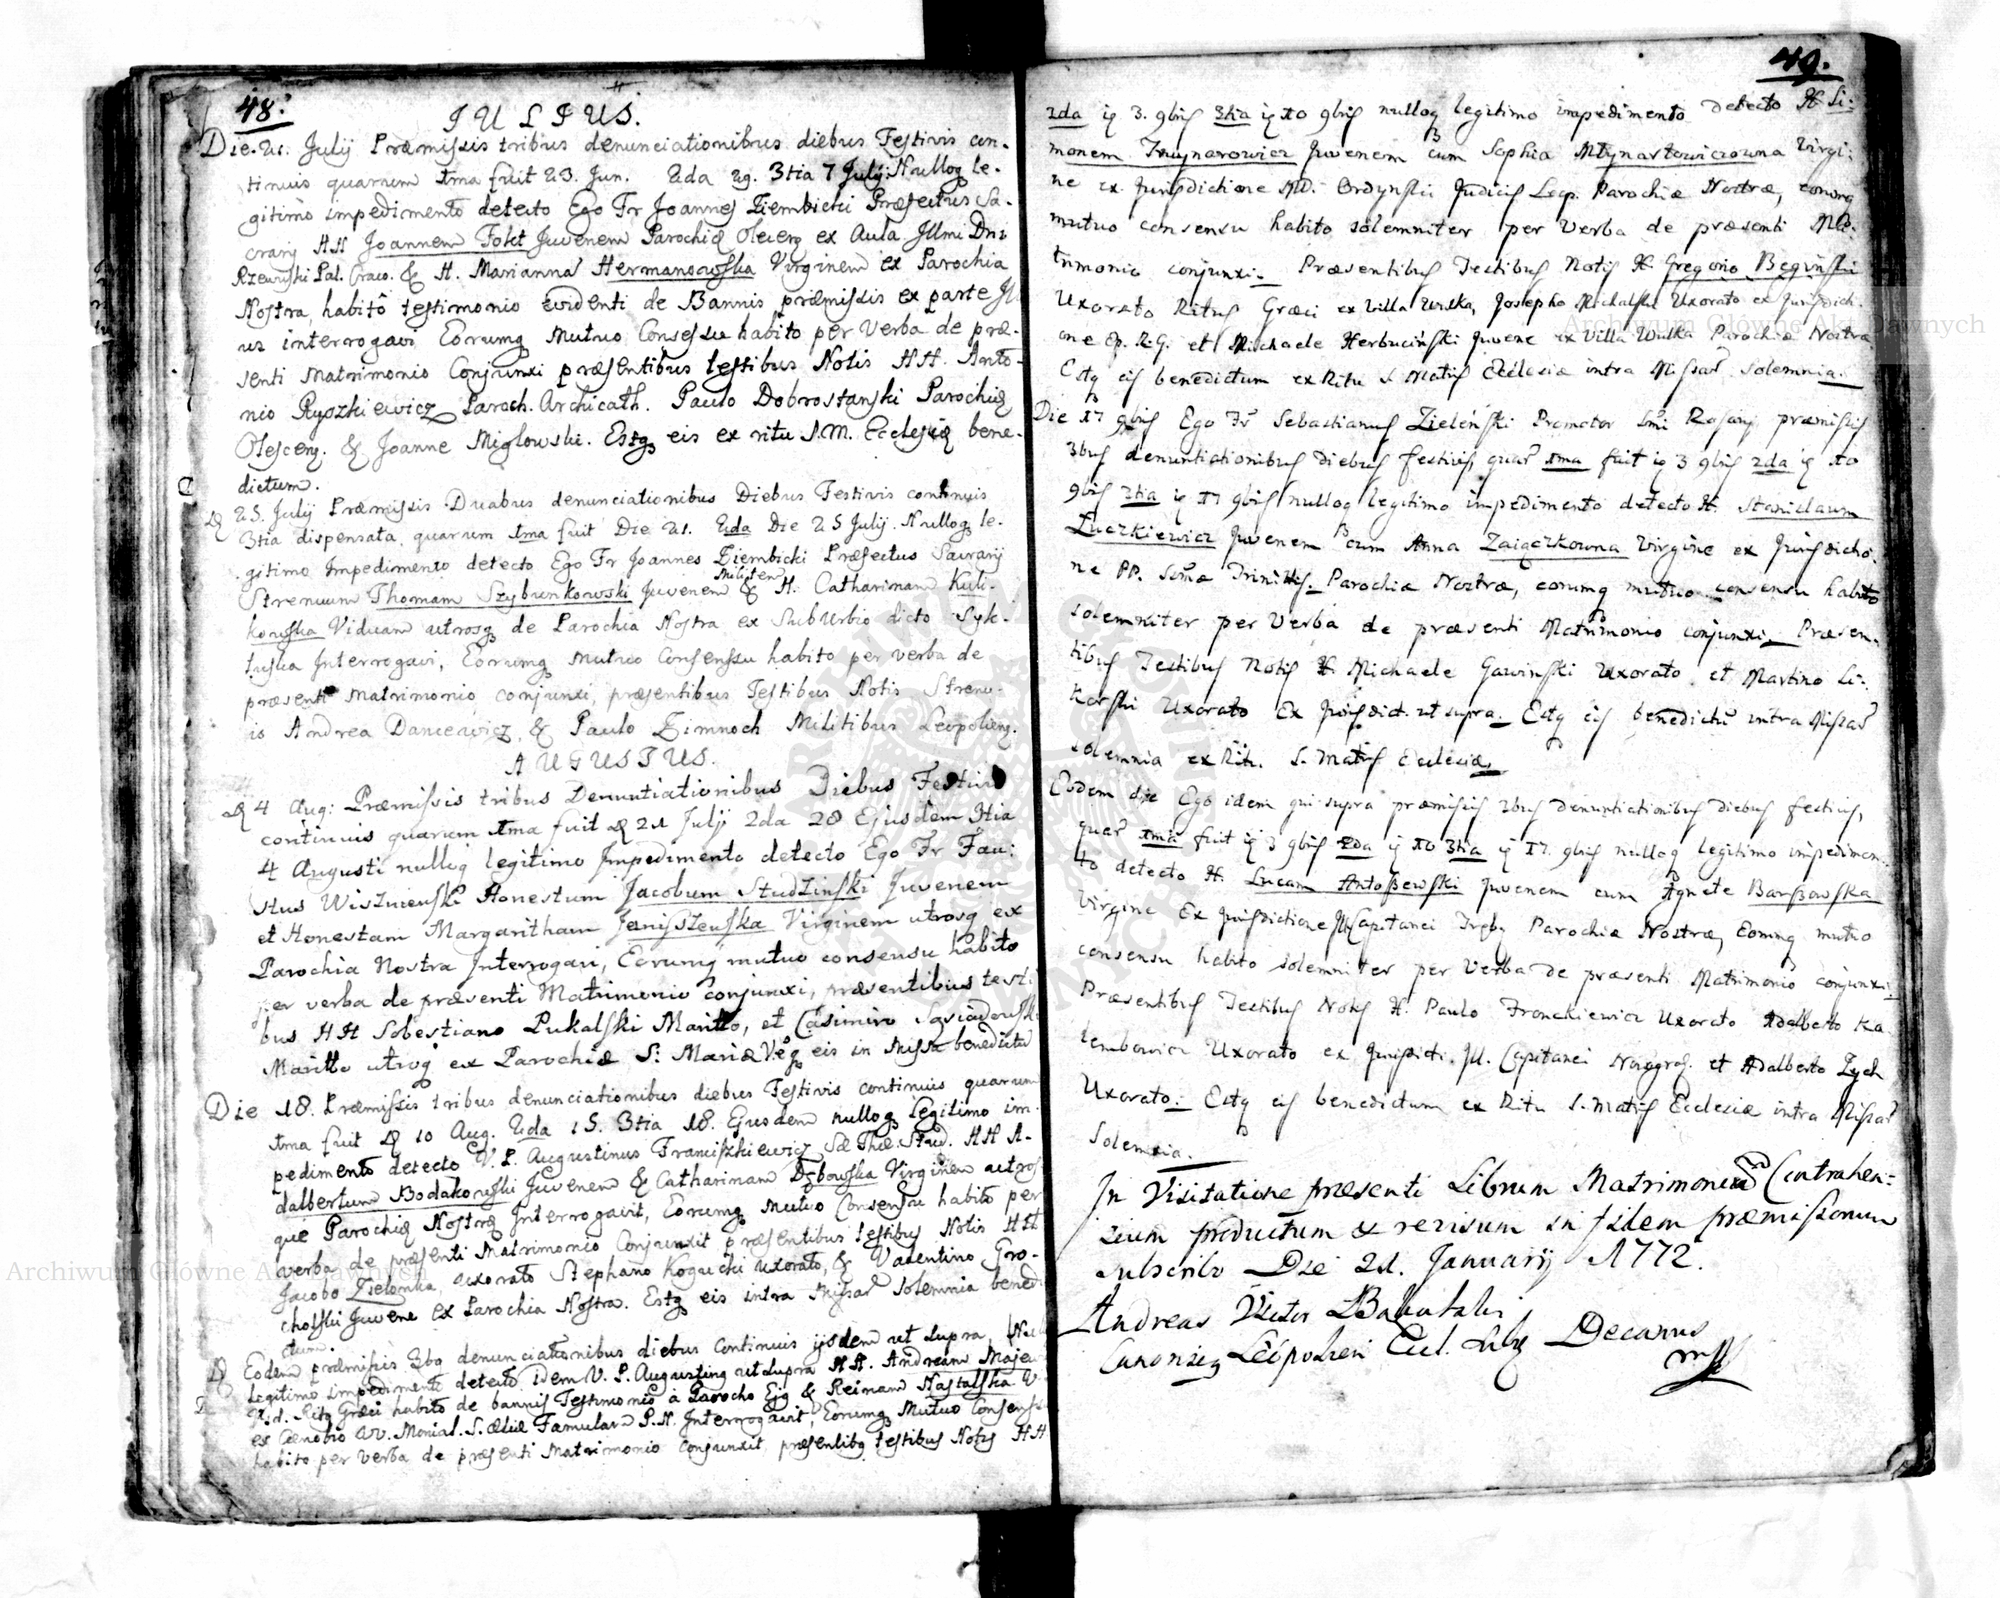 48.
JULIUS.
Die. 21. Julij Præmissis tribus denunciationibus diebus Festivis con-
tinuis quarum 1ma fuit 23. Jun. 2da 29. 3tia 7 Julij. Nulloq le-
gitimo impedimento detecto Ego Fr Joannes Ziembicki Præfectus Sa-
crarij HH Joannem Juvenem Parochiæ ex Aula Illmi Dni
Rzewuski Pal. Craco. & H. Marianna Hermanowska Virginem ex Parochia
Nostra, habitô testimonio evidenti de Bannis præmissis ex parte
interrogavi Eorumq Mutuo Consensu habito per Verba de præ-
senti Matrimonio Conjunxi præsentibus testibus Notis HH. Anto-
nio Ryszkiewicz Paroch. Archicath. Paulo Dobrostanski Parochiæ
& Joanne Miglowski. Estq eis ex ritu S.M. Ecclesiæ bene-
dictum.
25. Julij Præmissis Duabus denunciationibus Diebus Festivis continuis
3tia dispensata, quarum 1ma fuit Die 21. 2da Die 25 Julij. Nulloq le-
gitimo Impedimento detecto Ego Fr Joannes Ziembicki Præfectus Sacrarij
Militem
Strenuum Thomam Szybunkowski Juvenem & H. Catharinam Kuli-
kowska Viduam utrosq de Parochia Nostra ex SubUrbio dicto Syk-
tuska Interrogavi, Eorumq Mutuo Consensu habito per verba de
præsenti Matrimonio conjunxi, præsentibus Testibus Notis Strenu-
is Andrea Dancewicz, & Paulo Zimnoch Militibus Leopolien.
AUGUSTUS.
4 Aug: Præmissis tribus Denuntiationibus Diebus Festivis
continuis quarum 1ma fuit 21 Julij 2da 28 Ejusdem 3tia
4 Augusti nulloq legitimo Impedimento detecto Ego Fr Fau:
stus Wiszniewski Honestum Jacobum Studzinski Juvenem
et Honestam Margaritham Janiszewska Virginem utrosq ex
Parochia Nostra Interrogavi, Eorumq mutuo consensu habito
per verba de præsenti Matrimonio conjunxi, præsentibus testi
bus HH Sebestiano Pukalski Marito, et Casimiro
Marito utroq ex Parochiæ S: Mariæ eis in Missa benedictu
Die 18. Præmissis tribus denunciationibus diebus Festivis continuis quarum
1ma fuit 10 Aug. 2da 15. 3tia 18. Ejusdem nulloq Legitimo im-
pedimento detecto V. P. Augustinus Franciszkiewicz Sæ Thæ: Stud. HH A-
dalbertum Bodakowski Juvenem & Catharinam Dębowska Virginem utros
que Parochiæ Nostræ Interrogavit, Eorumq Mutuo Consensu habito per
verba de præsenti Matrimonio Conjunxit præsentibus testibus Notis HH
Jacobo Zielonka, uxorato Stephano Rogucki uxorato, & Valentino Gro-
cholski Juvene ex Parochia Nostra. Estq eis intra Missar Solemnia bened
ctum.
Eodem præmissis 3bq denunciationibus diebus Continuis ijsdem ut supra, Nul
Legitimo impedimento detecto idem V. P. Augustinq ut supra HH. Andream
Ritq Græci habito de bannis Testimonio à Parocho Ejq & Reinam Nastalska V
ex Cænobio Monial. Famulam P.N. Interrogavit, Eorumq Mutuo Consensu
habito per verba de præsenti Matrimonio conjunxit, præsentibq testibus Notis HH
49.
2da 3. 9bris 3tia 10 9bris nulloq legitimo impedimento detecto H Si:
monem Juvenem cum Sophia Młynartowiczowna Virgi:
ne ex Jurisdictione MD. Ordynski Judicis Leop. Parochiæ Nostræ, eorumq
mutuo consensu habito solemniter per Verba de præsenti Ma
trimonio conjunxi. Præsentibus Testibus Notis H. Gregorio Beginski
Uxorato Ritus Græci ex Villa Wulka, Josepho Michalski Uxorato ex Jurisdicti
one Ep. R.G. et Michaele Herbucinski Juvene ex Villa Wulka Parochiæ Nostræ
Estq eis benedictum ex Ritu S. Matris Ecclesiæ intra Missar Solemnia.
Die 17 9bris Ego Fr Sebastianus Zieleński Promotor Smi Rosarij præmissis
3bus denuntiationibus diebus festivis, quar 1ma fuit 3 9bris 2da 10
9bris 3tia 17 9bris nulloq legitimo impedimento detecto H. Stanislaum
Łuczkiewicz Juvenem cum Anna Zaiączkowna Virgine ex Jurisdictio
ne PP. Scmæ Trinittis. Parochiæ Nostræ, eorumq mutuo consensu habito
solemniter per Verba de præsenti Matrimonio conjunxi. Præsen-
tibus Testibus Notis H Michaele Gawinski Uxorato et Martino Si-
karski Uxorato Ex Jurisdict. ut supra. Estq eis benedictu intra Missar
solemnia ex Ritu. S. Matris Ecclesiæ
Eodem die Ego idem qui supra præmissis 3bus denuntiationibus diebus festivis,
quar 1ma fuit 3 9bris 2da 10 3tia 17. 9bris nulloq legitimo impedimen-
to detecto H. Lucam Antoszewski Juvenem cum Agnete Barszowska
Virgine Ex Jurisdictione Capitanei Parochiæ Nostræ, Eorumq mutuo
consensu habito solemniter per Verba de præsenti Matrimonio conjunxi.
Præsentibus Testibus Notis H. Paulo Fronckiewicz Uxorato Adalberto Ka
lembowicz Uxorato ex Jurisdicti. Ill. Capitanei et Adalberto Zych
Uxorato. Estq eis benedictum ex Ritu S. Matris Ecclesiæ intra Missar
Solemnia.
In Visitatione præsenti Librum Matrimonia Contrahen-
tium productum & revisum in fidem præmissorum
subscribo Die 21. Januarij 1772.
Andreas Victor
Canonicq Leopolien Decanus